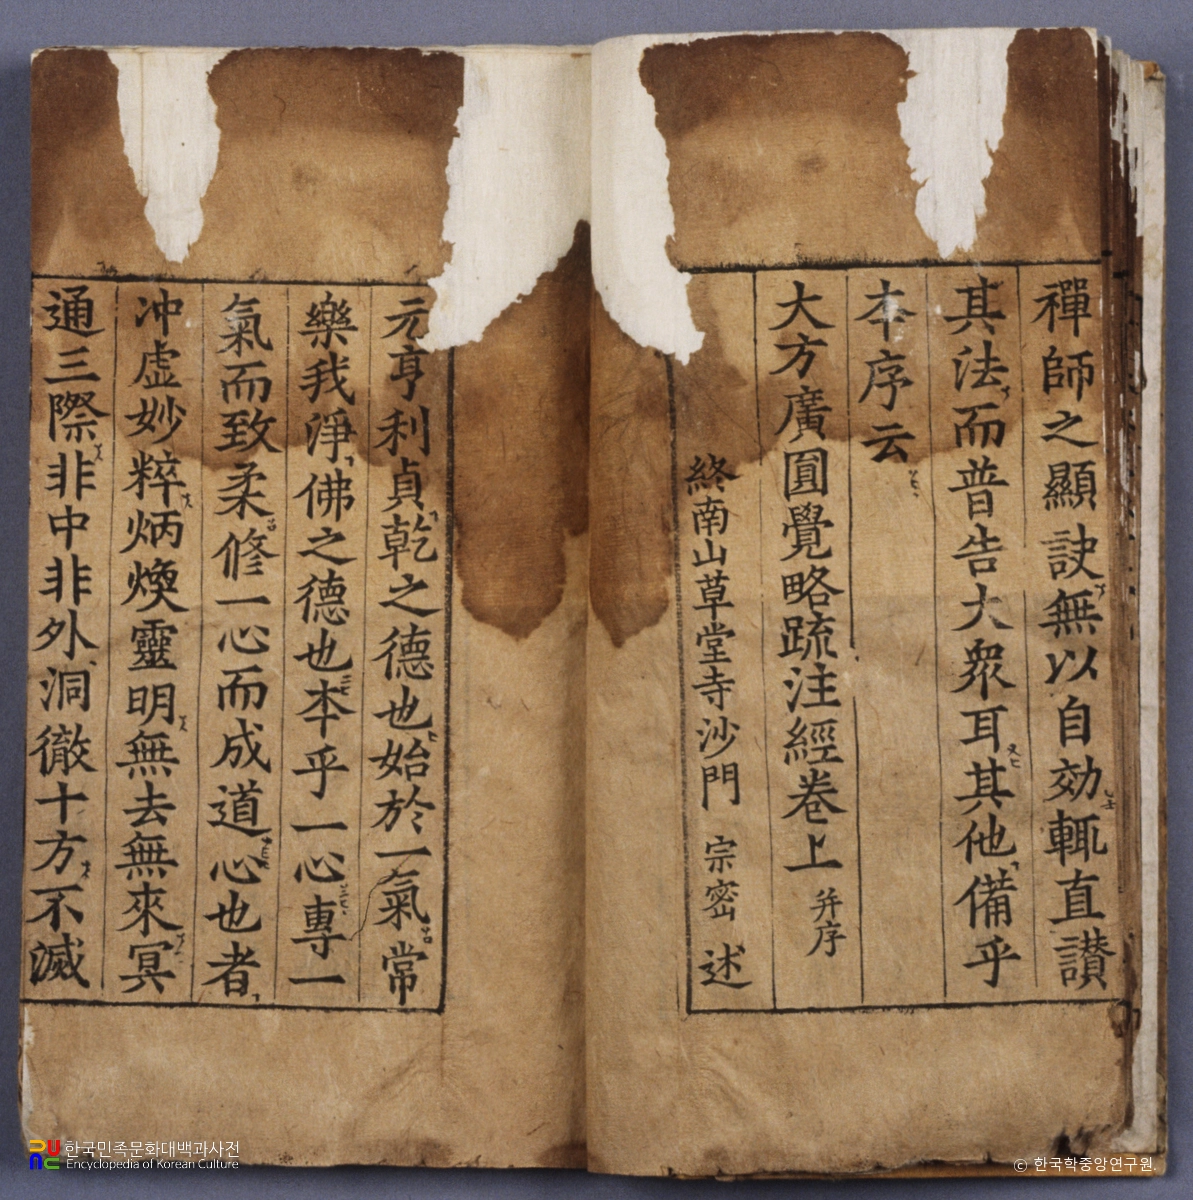 禪師之顯訣無以自効輒直讃
其法而普告大衆耳其他備乎
本序云
大方廣圓覺略疏注經卷上 并序
終南山草堂寺沙門 宗密 述
元亨利貞乾之德也始於一氣常
樂我淨佛之德也本乎一心專一
氣而致柔修一心而成道心也者
冲虛妙粹炳煥靈明無去無來冥
通三際非中非外洞徹十方不滅
한국민족문화대백과사전
Encyclopedia of Korean Culture
© 한국학중앙연구원.